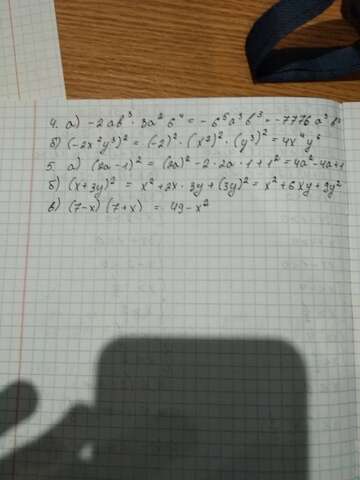 4. а) -2ab³ · 3a² b⁴ = -6⁵a³b³ = -7776 a³b³
б) (-2x²y³)² = (-2)² · (x²)² · (y³)² = 4x⁴y⁶
5. а) (2a-1)² = (2a)² - 2·2a·1+1² = 4a²-4a+1
б) (x+3y)² = x²+2x·3y+(3y)² = x²+6xy+9y²
в) (7-x)(7+x) = 49-x²